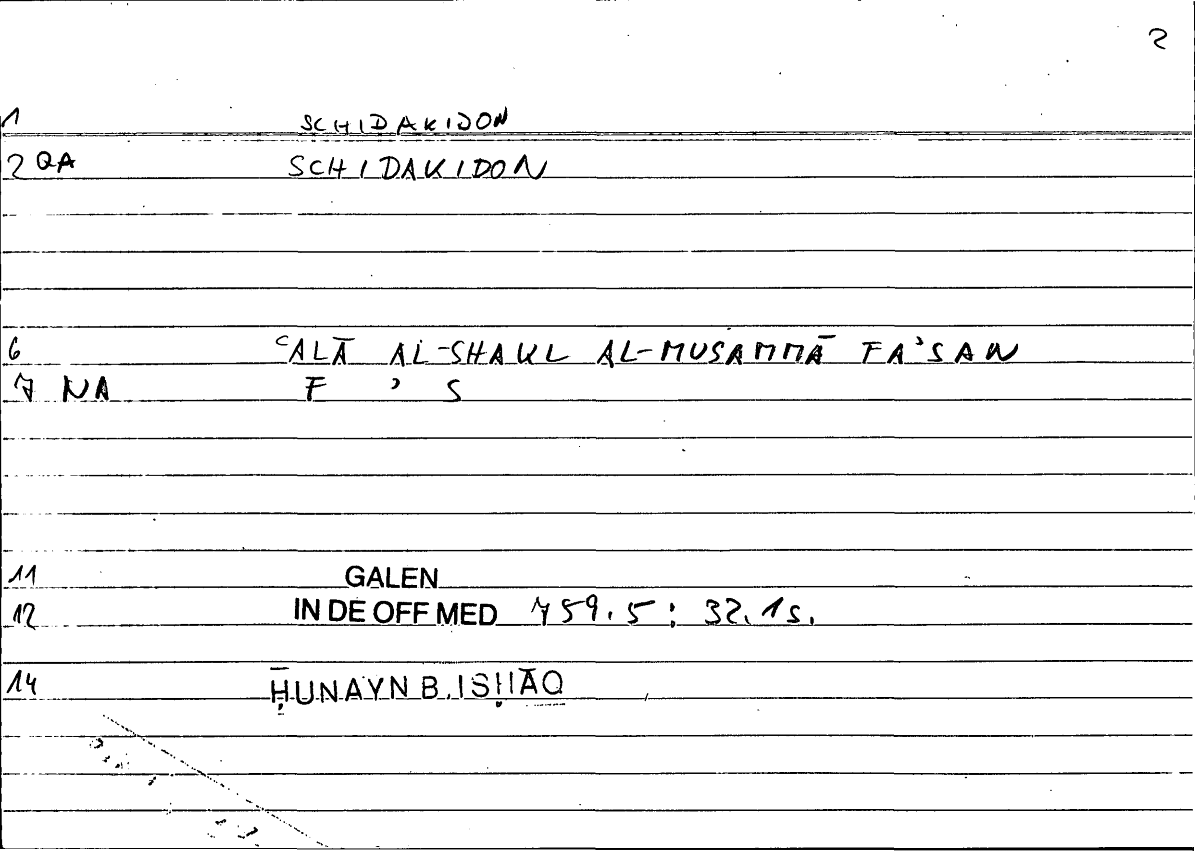 2
1 SCHIDAKIDON
2 QA SCHIDAKIDON
6 ʿALĀ AL-SHAKL AL-MUSAMMĀ FAʾSAN
7 NA F ʾ S
11 GALEN
12 IN DE OFF MED 759.5 : 32.1s.
14 ḤUNAYN B. ISḤĀQ